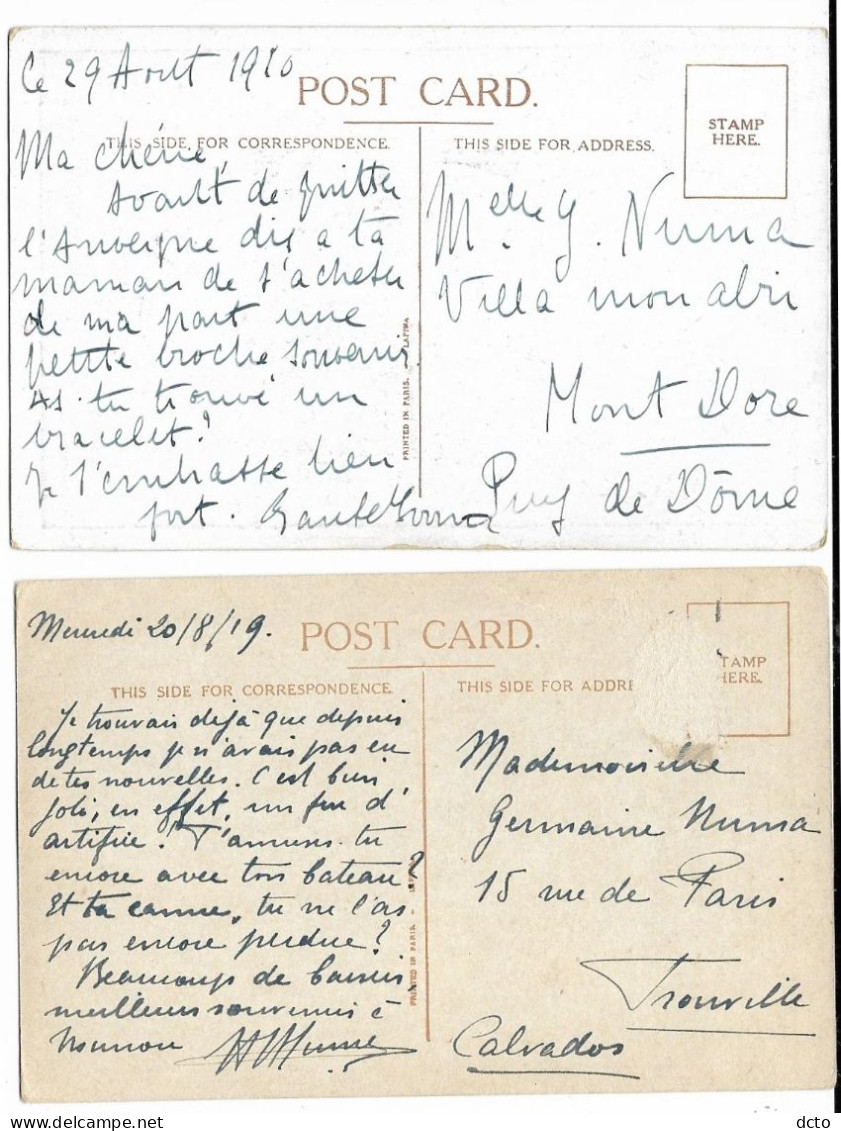 Ce 29 Août 1910
POST CARD.
THIS SIDE FOR CORRESPONDENCE.
THIS SIDE FOR ADDRESS.
STAMP
HERE.
Ma chérie,
Avant de quitter
l'Auvergne dis a ta
maman de t'acheter
de ma part une
petite broche souvenir
As-tu trouvé un
bracelet?
Je t'embrasse bien
fort.
Melle G. Numa
Villa mon abri
Mont Dore
Puy de Dôme
PRINTED IN PARIS. - LAPINA
Mercredi 20/8/19.
POST CARD.
THIS SIDE FOR CORRESPONDENCE.
THIS SIDE FOR ADDRE
TAMP
HERE.
Je trouvais déjà que depuis
longtemps je n'avais pas eu
de tes nouvelles. C'est bien
joli, en effet, un feu d'
artifice! T'amuses-tu
encore avec ton bateau?
Et ta canne, tu ne l'as
pas encore perdue?
Beaucoup de baisers
meilleurs souvenirs à
Mademoiselle
Germaine Numa
15 rue de Paris
Trouville
Calvados
PRINTED IN PARIS. -
dcto